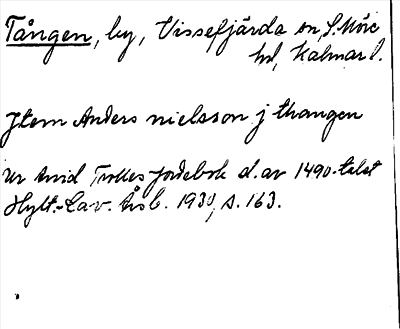 Tången, by, Vissefjärda sn, S. Möre
hd, Kalmar l.
Jtem Anders nielsson j thangen
Ur Arvid Trolles jordebok d. av 1490-talet
Hylt.-Cav. Årsb. 1930, s. 163.